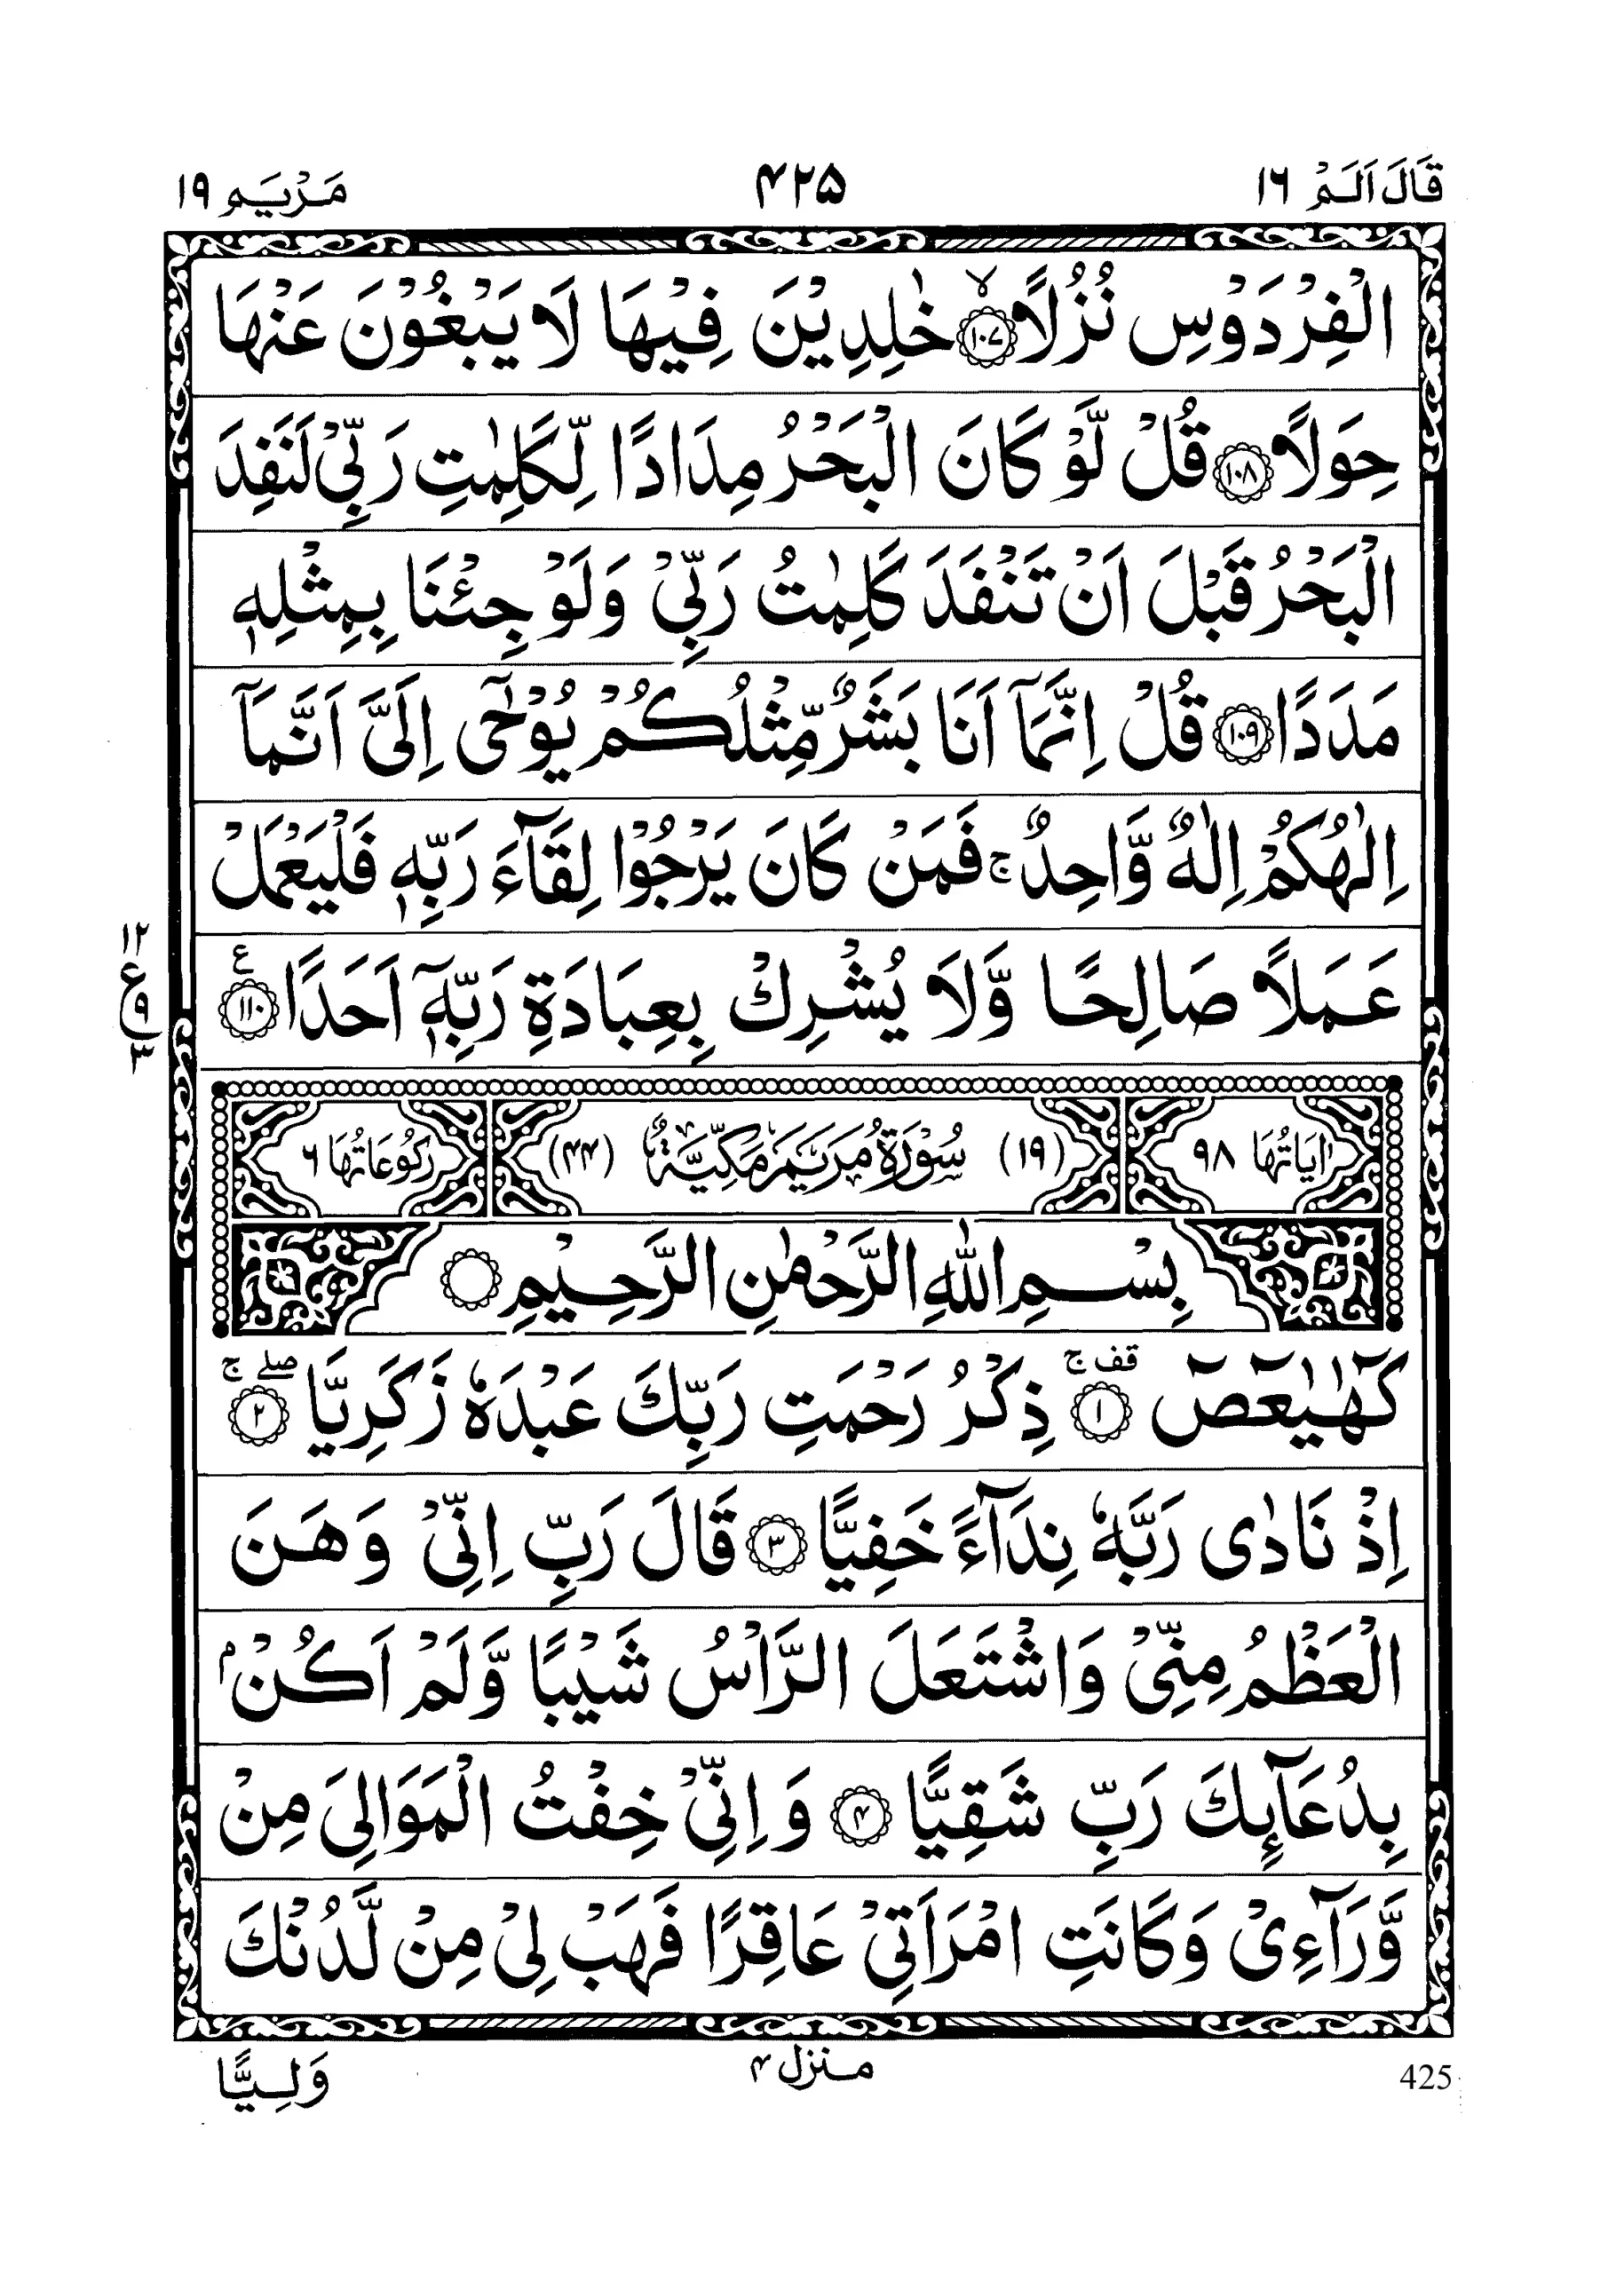 قَالَ اَلَمْ ۱۶ ۴۲۵ مَرْيَم ۱۹
الْفِرْدَوْسِ نُزُلًا ۙ﴿۱۰۷﴾ خٰلِدِيْنَ فِيْهَا لَا يَبْغُوْنَ عَنْهَا
حِوَلًا ﴿۱۰۸﴾ قُلْ لَّوْ كَانَ الْبَحْرُ مِدَادًا لِّكَلِمٰتِ رَبِّيْ لَنَفِدَ
الْبَحْرُ قَبْلَ اَنْ تَنْفَدَ كَلِمٰتُ رَبِّيْ وَلَوْ جِئْنَا بِمِثْلِهٖ
مَدَدًا ﴿۱۰۹﴾ قُلْ اِنَّمَاۤ اَنَا بَشَرٌ مِّثْلُكُمْ يُوْحٰۤى اِلَيَّ اَنَّمَاۤ
اِلٰهُكُمْ اِلٰهٌ وَّاحِدٌ ۚ فَمَنْ كَانَ يَرْجُوْا لِقَآءَ رَبِّهٖ فَلْيَعْمَلْ
عَمَلًا صَالِحًا وَّلَا يُشْرِكْ بِعِبَادَةِ رَبِّهٖۤ اَحَدًا ﴿۱۱۰﴾ ع
۱۲
ع
۹
۳
اٰيَاتُهَا ۹۸ (۱۹) سُوْرَةُ مَرْيَمَ مَكِّيَّةٌ (۴۴) رُكُوْعَاتُهَا ۶
بِسْمِ اللّٰهِ الرَّحْمٰنِ الرَّحِيْمِ
كٓهٰيٰعٓصٓ ﴿۱﴾ قف ج ذِكْرُ رَحْمَتِ رَبِّكَ عَبْدَهٗ زَكَرِيَّا ﴿۲﴾ صلے ج
اِذْ نَادٰى رَبَّهٗ نِدَآءً خَفِيًّا ﴿۳﴾ قَالَ رَبِّ اِنِّيْ وَهَنَ
الْعَظْمُ مِنِّيْ وَاشْتَعَلَ الرَّاْسُ شَيْبًا وَّلَمْ اَكُنْۢ
بِدُعَآئِكَ رَبِّ شَقِيًّا ﴿۴﴾ وَاِنِّيْ خِفْتُ الْمَوَالِيَ مِنْ
وَّرَآءِيْ وَكَانَتِ امْرَاَتِيْ عَاقِرًا فَهَبْ لِيْ مِنْ لَّدُنْكَ
425 منزل ۴ وَلِيًّا